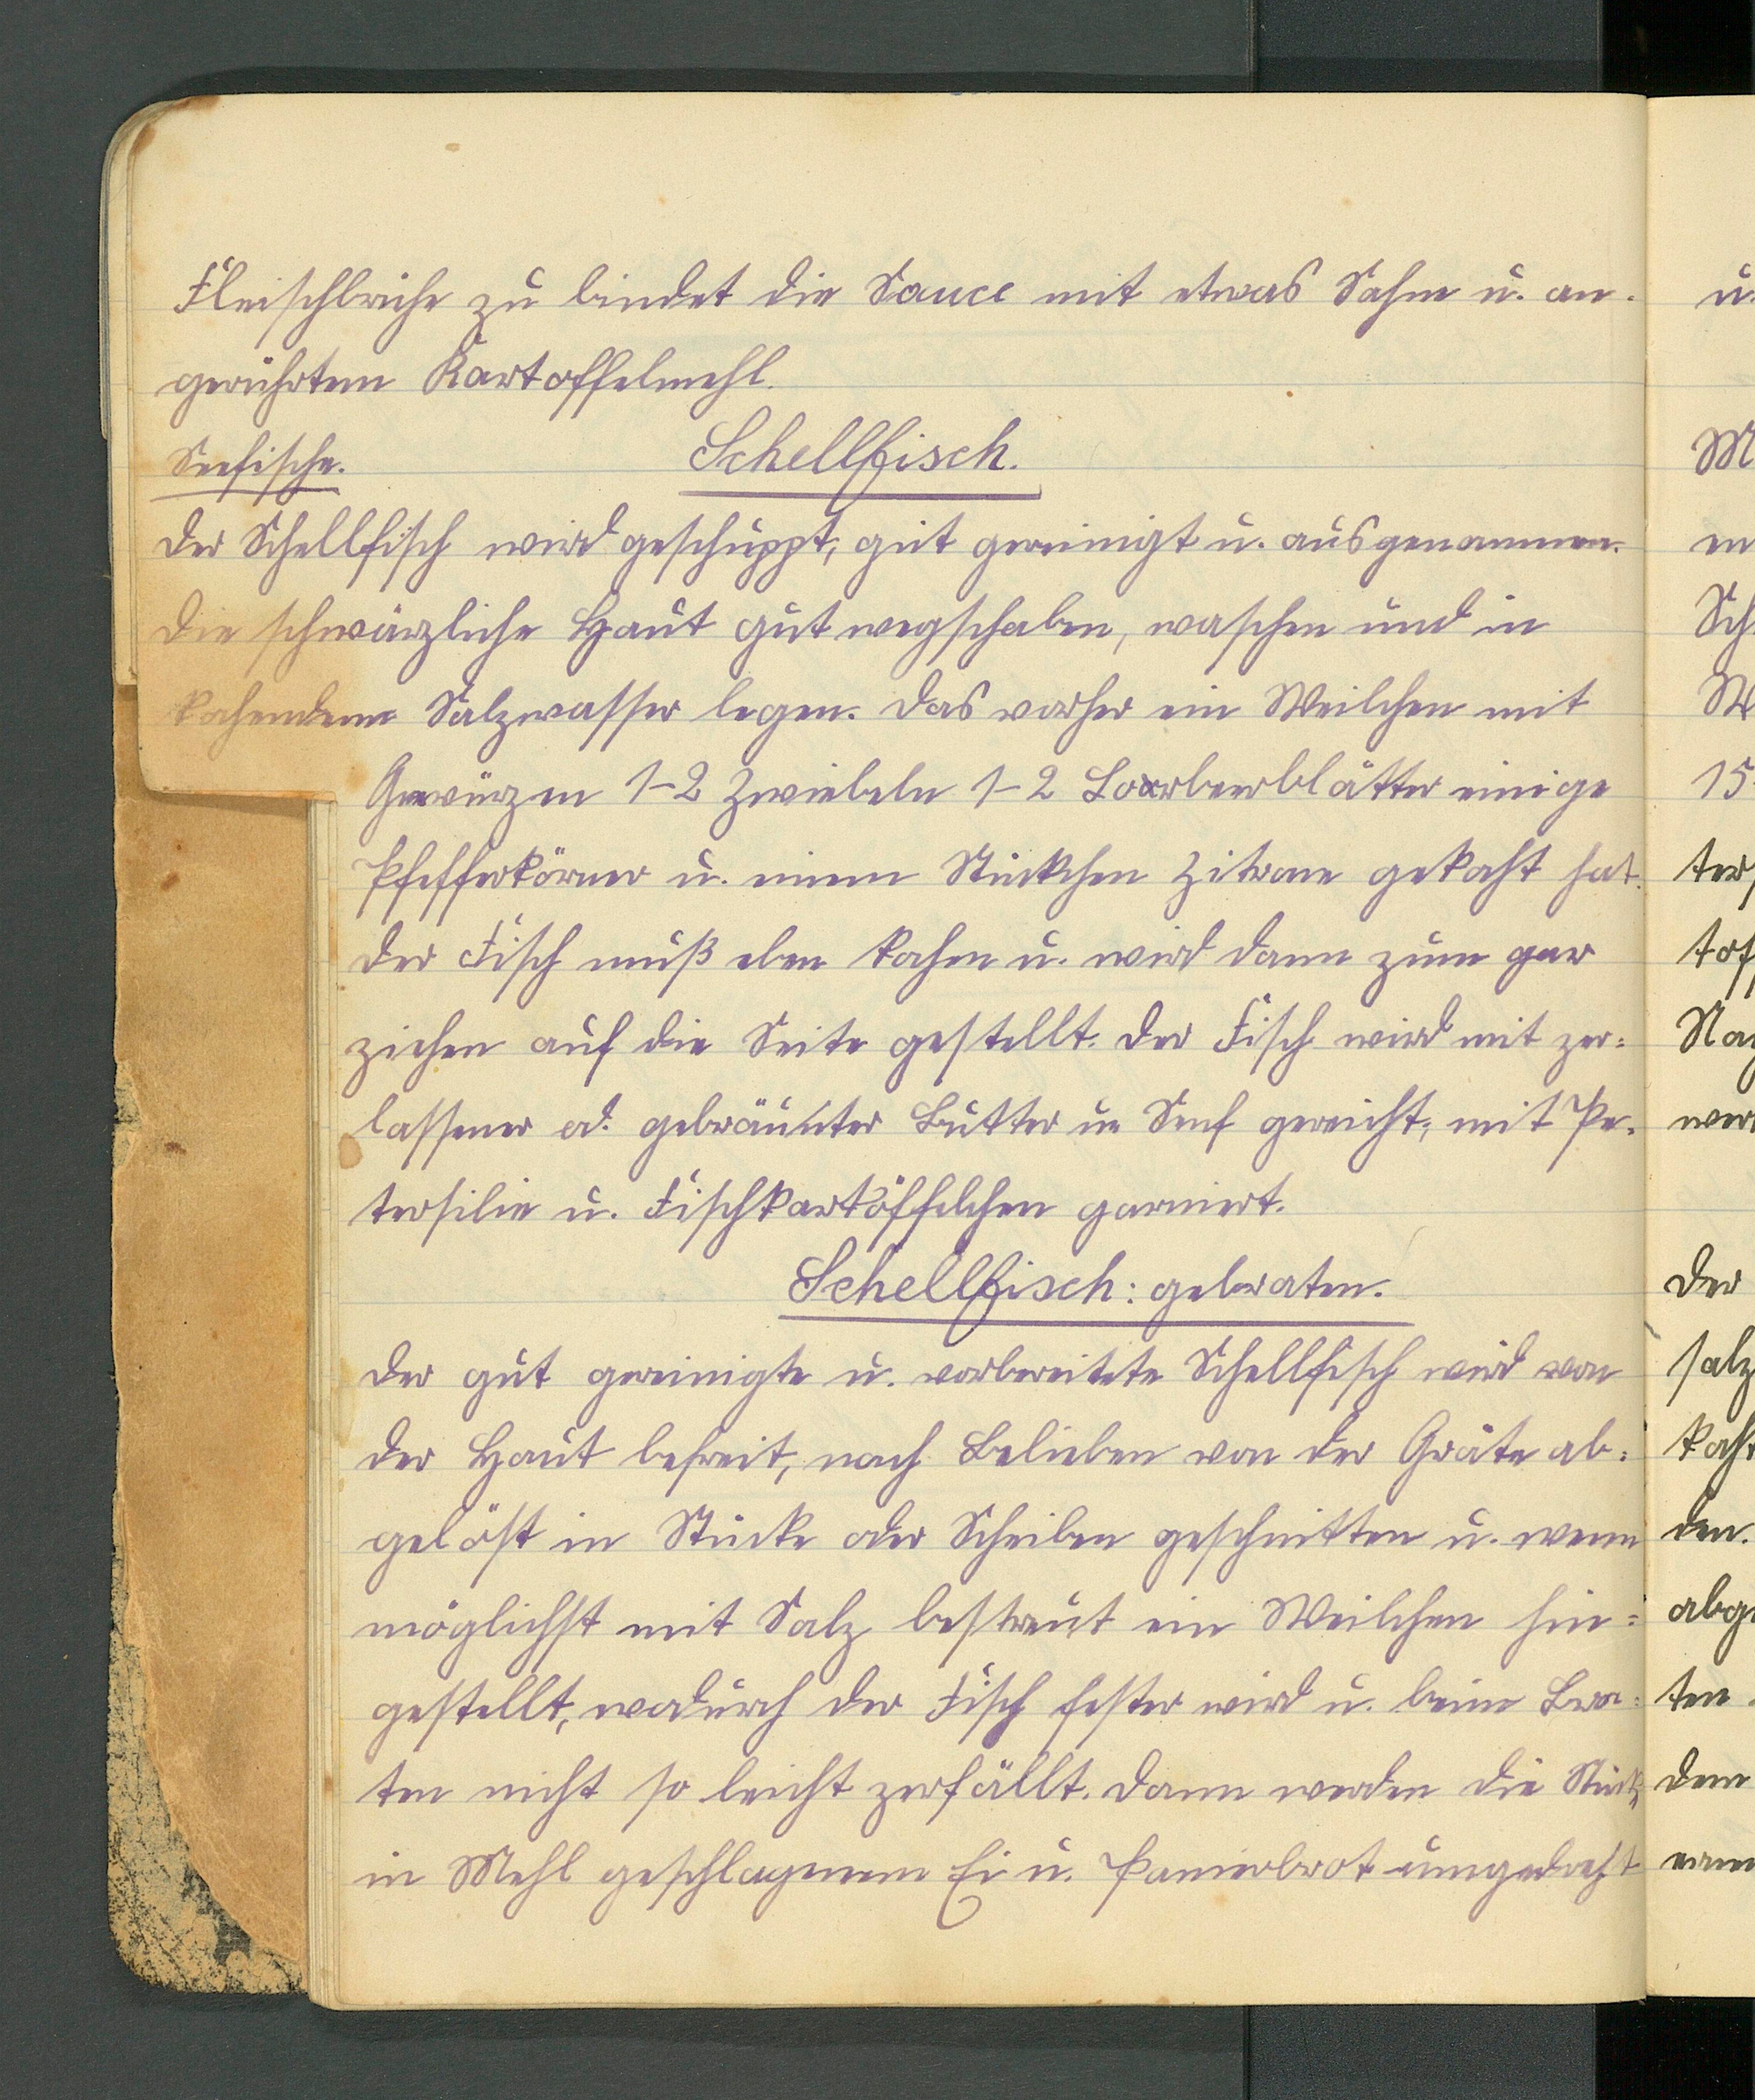 Fleischbrühe zu bindet die Sauce mit etwas Sahne u. an-
gerührtem Kartoffelmehl.
Seefische. Schellfisch.
Der Schellfisch wird geschuppt, gut gereinigt u. ausgenommen.
Die schwärzliche Haut gut wegschaben, waschen und in
kochendem Salzwasser legen. Das vorher ein Weilchen mit
Gewürzen 1-2 Zwiebeln 1-2 Lorbeerblätter einige
Pfefferkörner u. einem Stückchen Zitrone gekocht hat.
Der Fisch muß eben kochen u. wird dann zum gar
ziehen auf die Seite gestellt. Der Fisch wird mit zer-
lassener od. gebräunter Butter u. Senf gereicht, mit Pe-
tersilie u. Fischkartöffelchen garniert.
Schellfisch: gebraten.
Der gut gereinigte u. vorbereitete Schellfisch wird von
der Haut befreit, nach Belieben von der Gräte ab-
gelöst in Stücke oder Scheiben geschnitten u. wenn
möglichst mit Salz bestreut ein Weilchen hin-
gestellt, wodurch der Fisch fester wird u. beim Bra-
ten nicht so leicht zerfällt. Dann werden die Stücke
in Mehl geschlagenem Ei u. Panierbrot umgedreht
u.
M
en
Sch
W
15
ter
tof
Na
wer
Der
salz
koch
den.
abge
ten.
dem